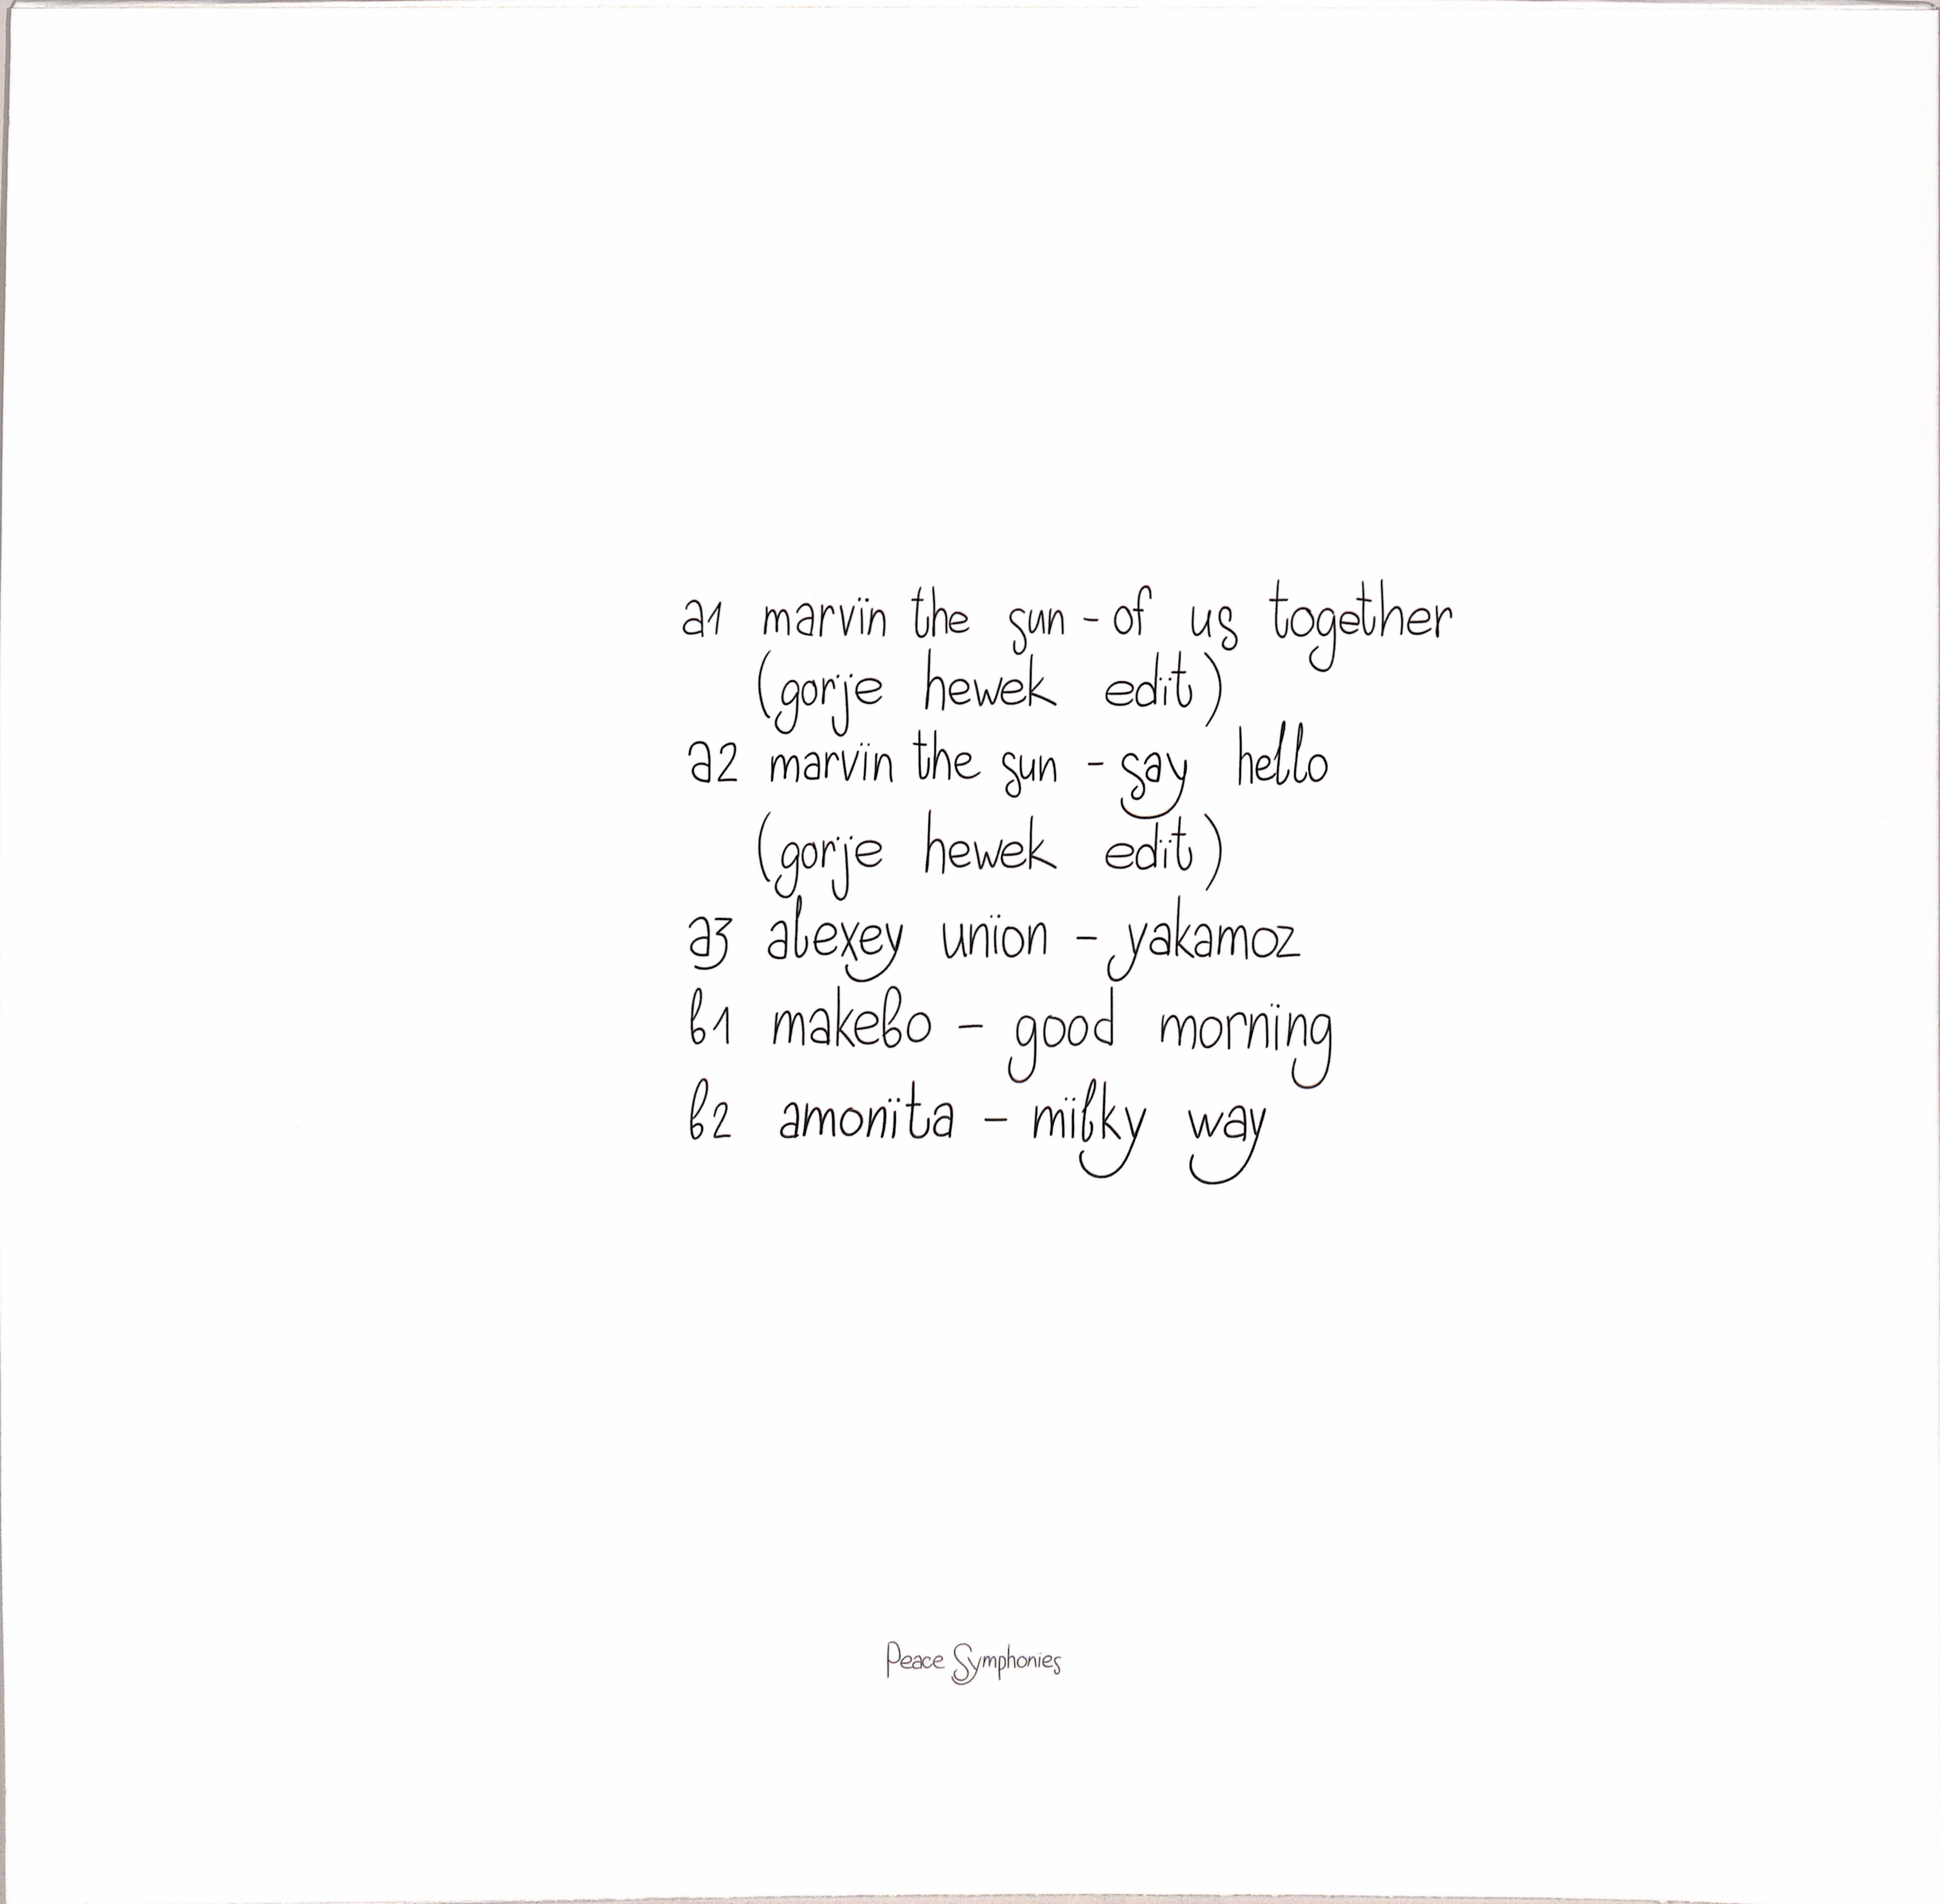 a1 marvin the sun - of us together
(gorje hewek edit)
a2 marvin the sun - say hello
(gorje hewek edit)
a3 alexey union - yakamoz
b1 makebo - good morning
b2 amonita - milky way
Peace Symphonies